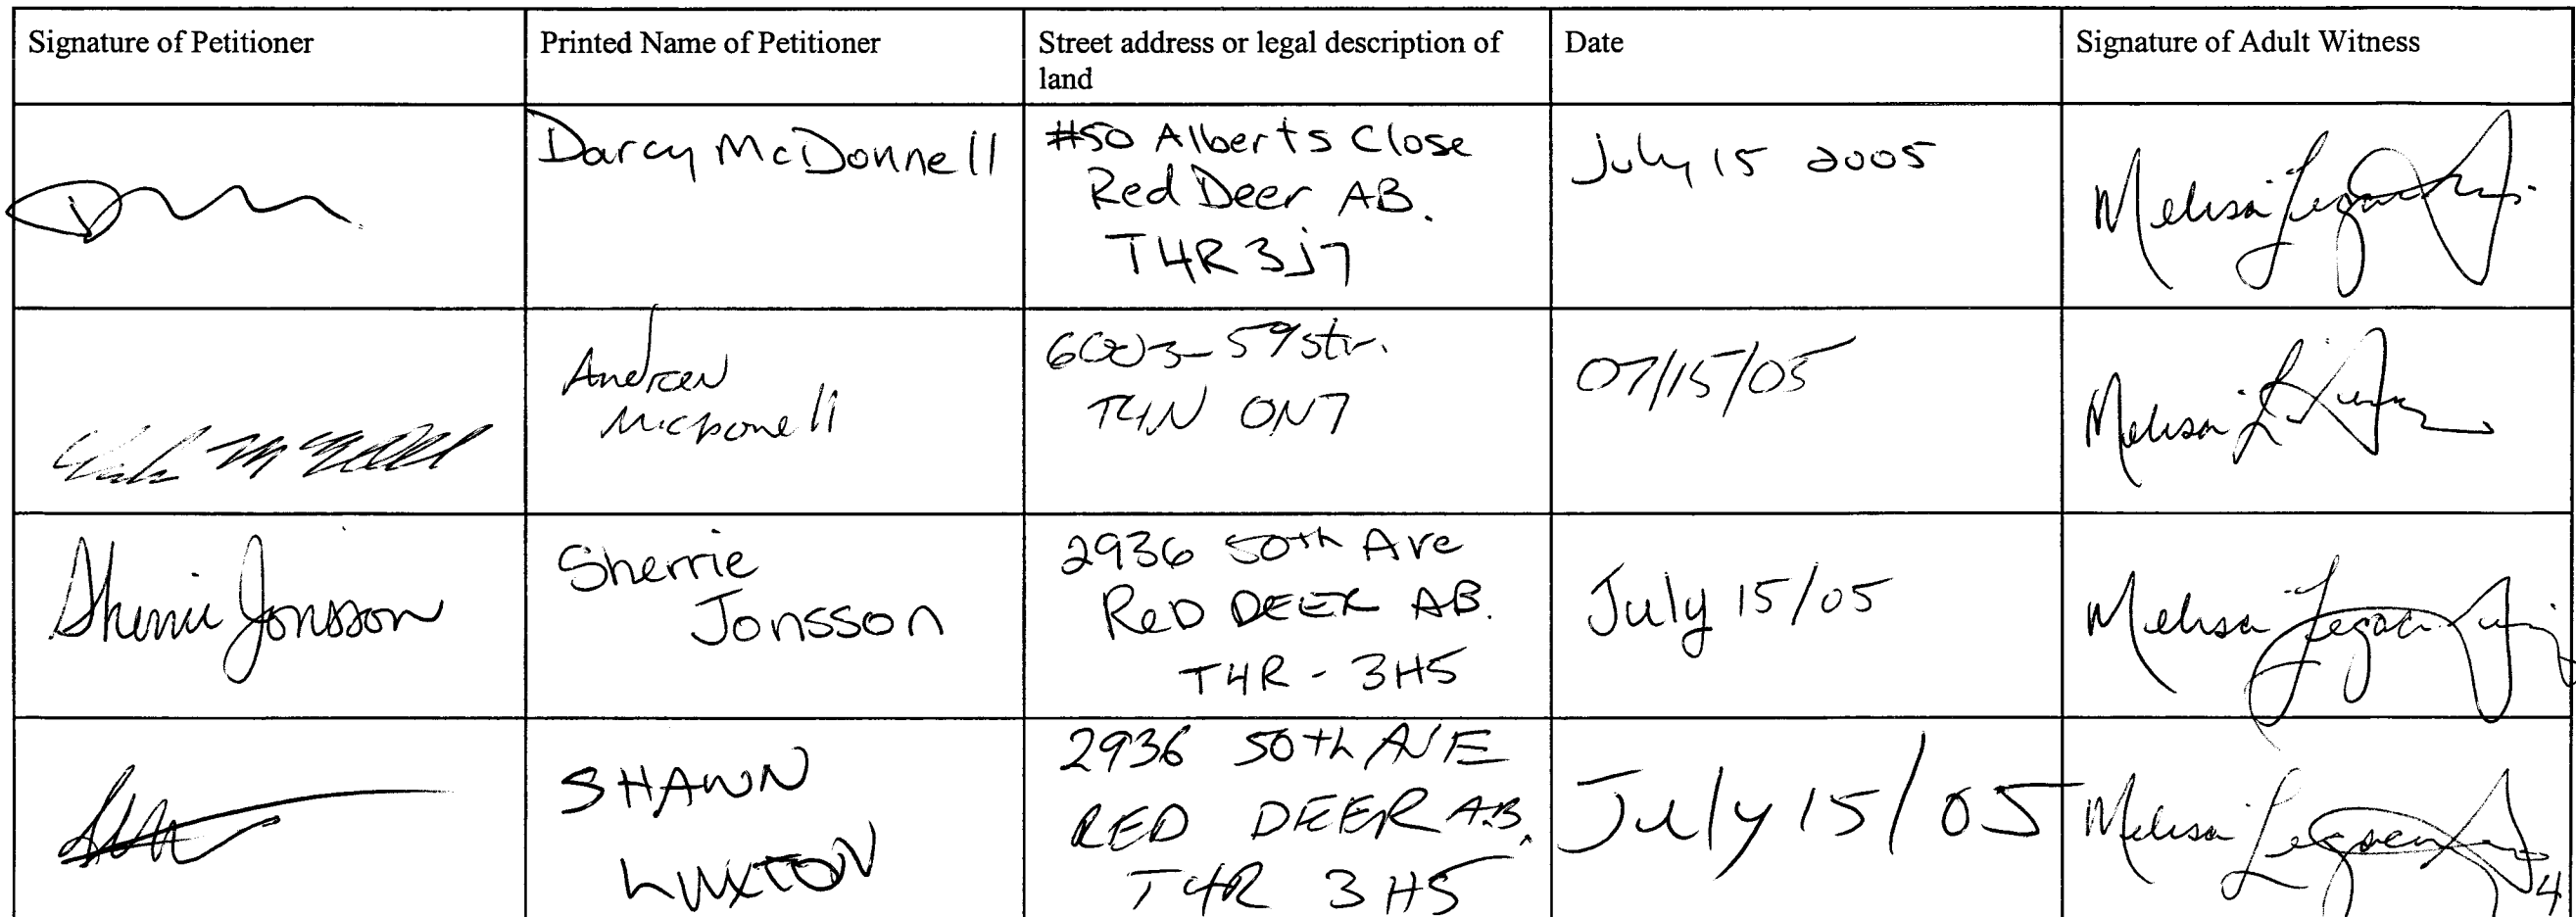 Signature of Petitioner
Printed Name of Petitioner
Street address or legal description of
land
Date
Signature of Adult Witness
Darcy McDonnell
#50 Alberts Close
Red Deer AB.
T4R 3J7
July 15 2005
Melissa
Andrew
McDonell
6003-59 str.
T4N 0N7
07/15/05
Melissa
Sherrie Jonsson
Sherrie
Jonsson
2936 50th Ave
ReD DEER AB.
T4R - 3H5
July 15/05
Melissa
SHAWN
LUXTON
2936 50th AVE
RED DEER AB.
T4R 3H5
July 15/05
Melissa
4